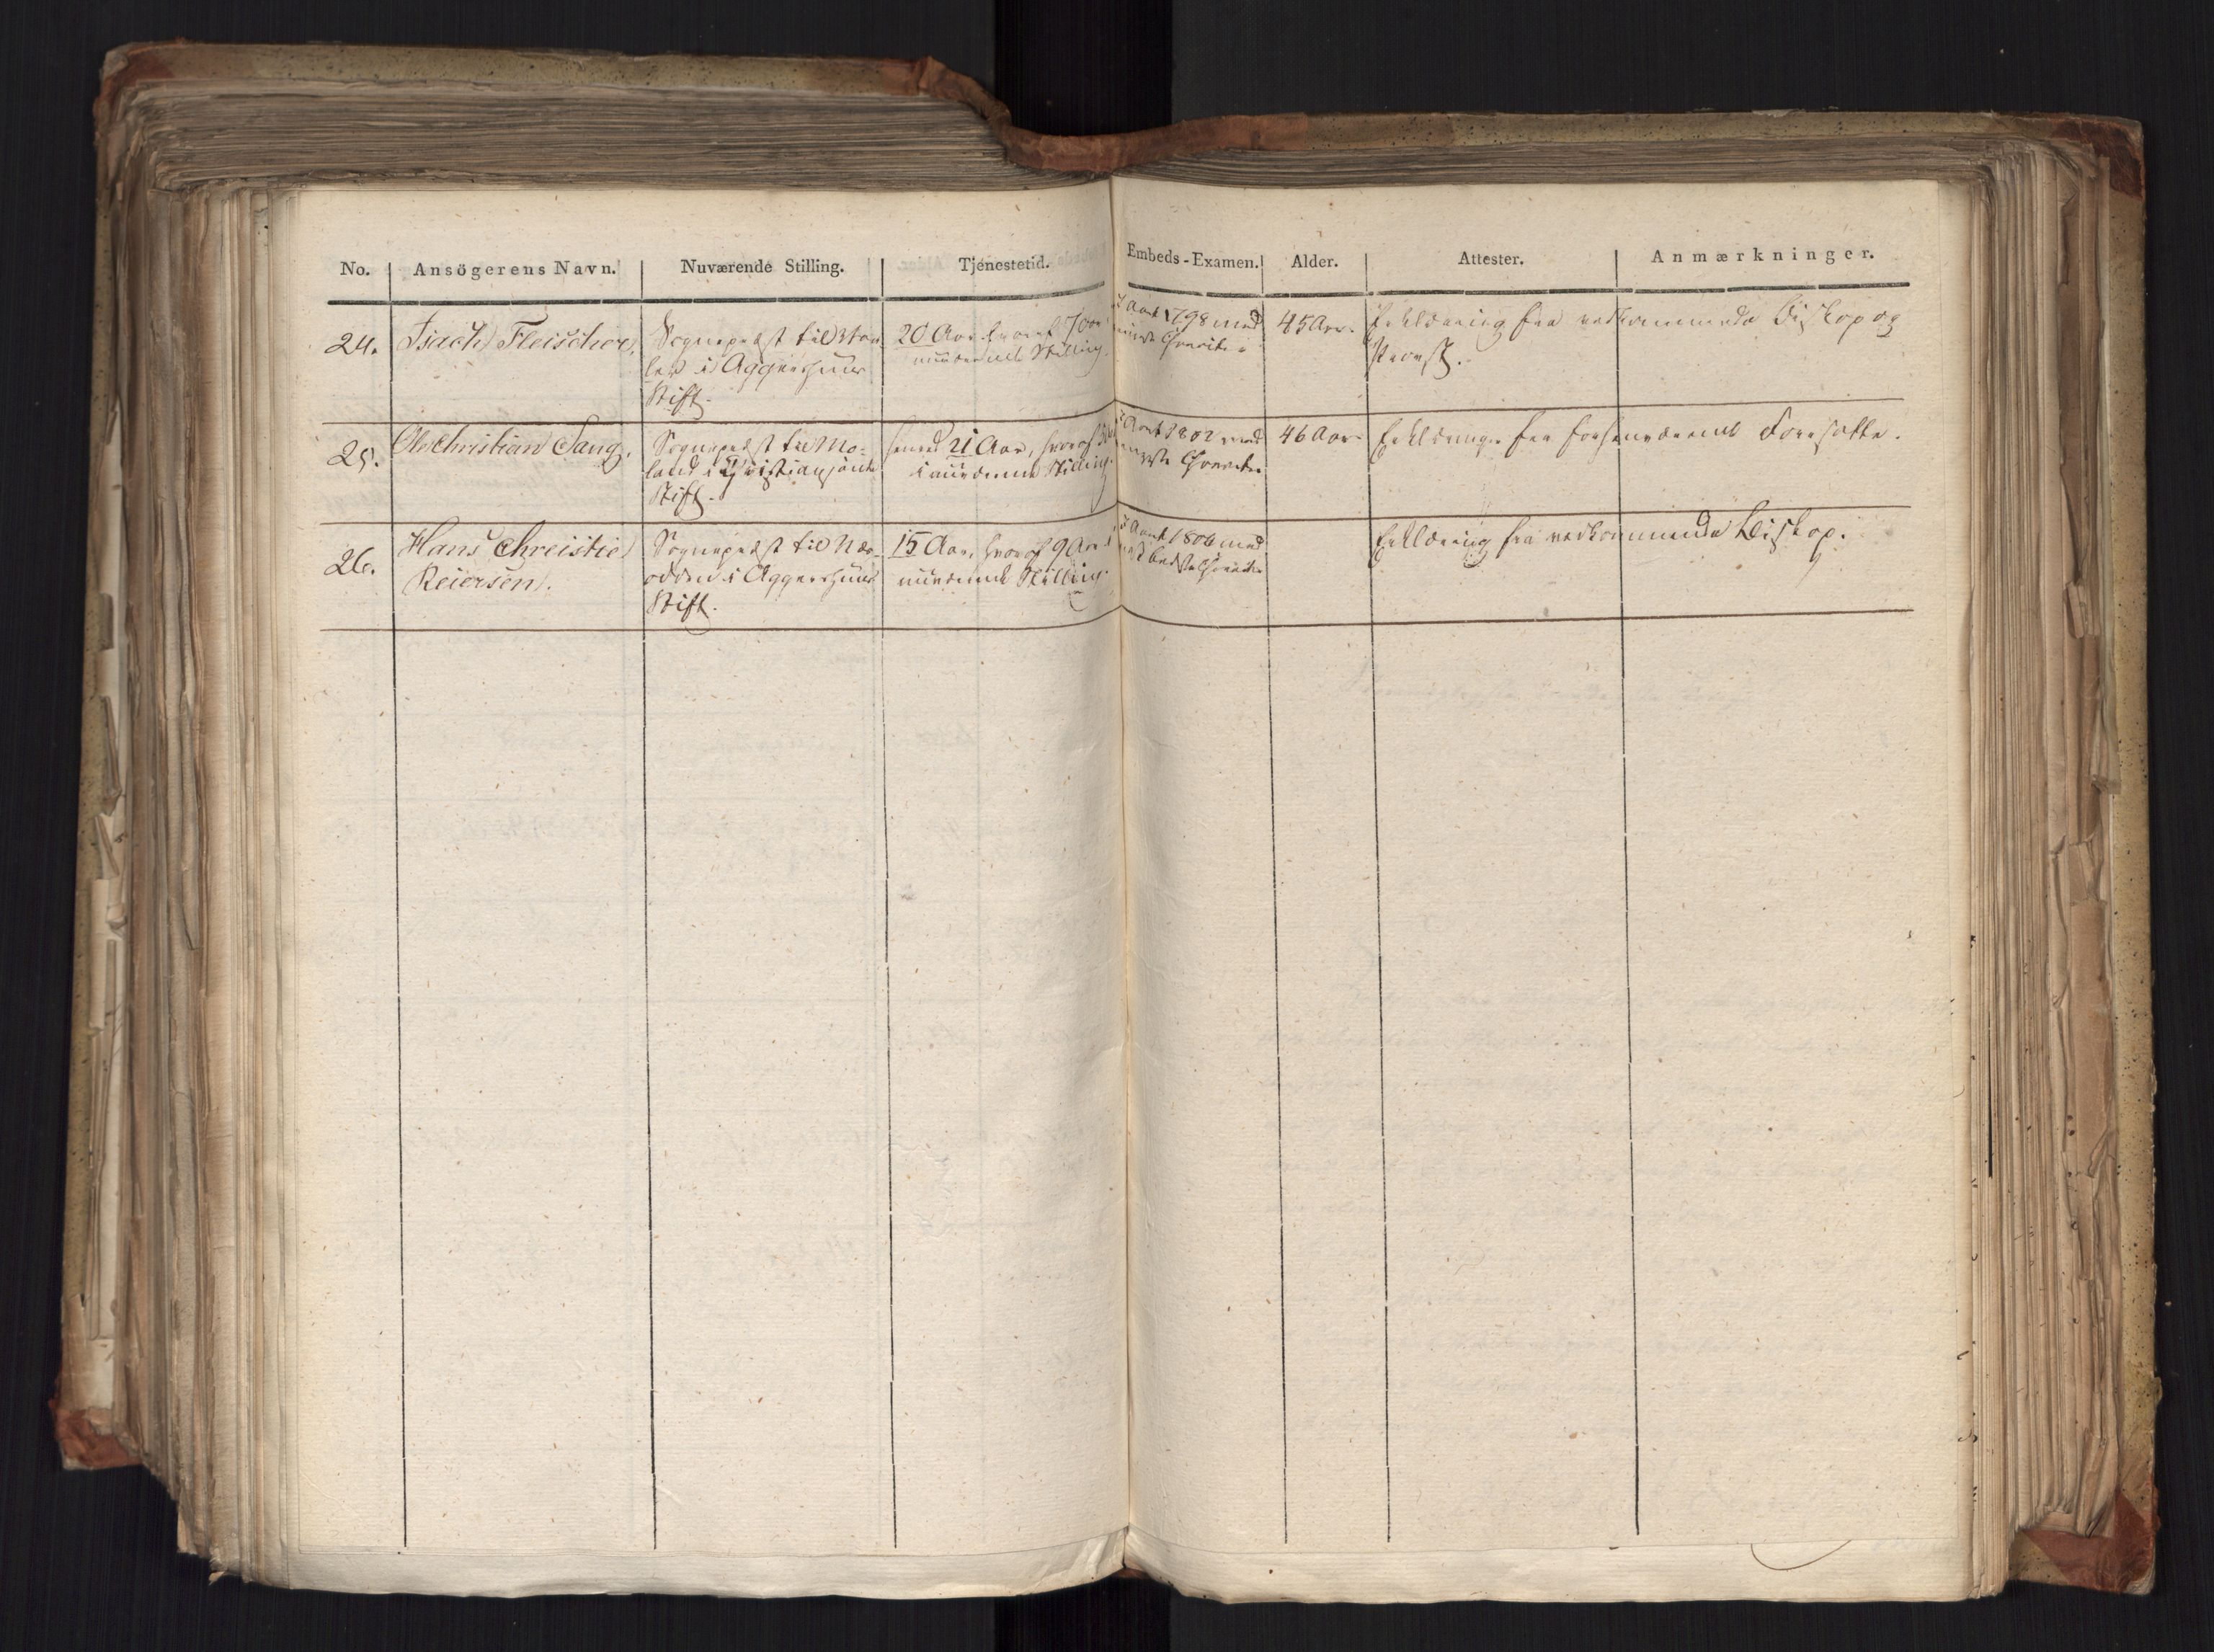 No. Ansögerens Navn. Nuværende Stilling. Tjenestetid. Embeds-Examen. Alder. Attester. Anmærkninger.
24. Isach Fleischer, Sognepræst til
i Aggershuus
Stift.
20 Aar, hvoraf 7 Aar i
nuværende Stilling.
i Aaret 1798 med
Characteer
45 Aar.
Erklæring fra vedkommende Biskop og
Provst.
25. Ole Christian Sang. Sognepræst til Mo-
land i Christiansands
Stift.
21 Aar, hvoraf
i nuværende Stilling.
i Aaret 1802 med
Character
46 Aar
Erklæringer fra forhenværende Foresatte.
26. Hans Christie
Reiersen.
Sognepræst til Næs-
odden i Aggershuus
Stift.
15 Aar, hvoraf 9 Aar i
nuværende Stilling
i Aaret 1806 med
Character
Erklæring fra vedkommende Biskop.